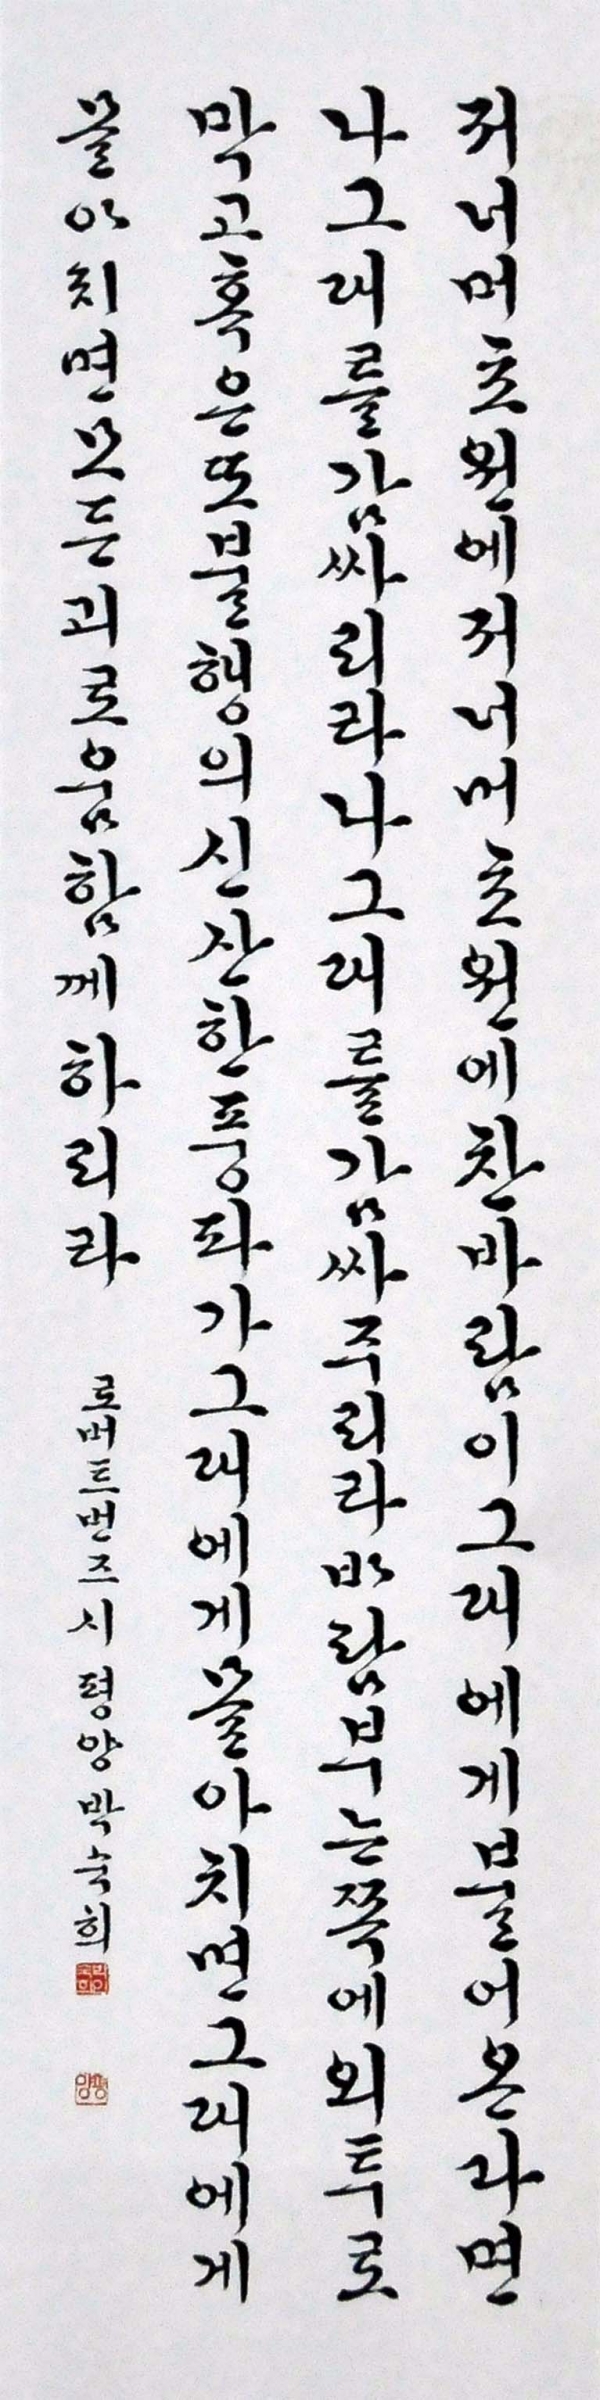 저너머초원에저너머초원에찬바람이그대에게불어온다면
나그대를감싸리라나그대를감싸주리라바람부는쪽에외투로
막고혹은또불행의신산한풍파가그대에게몰아치면그대에게
몰아치면모든괴로움함께하리라
로버트번즈시 평양박숙희